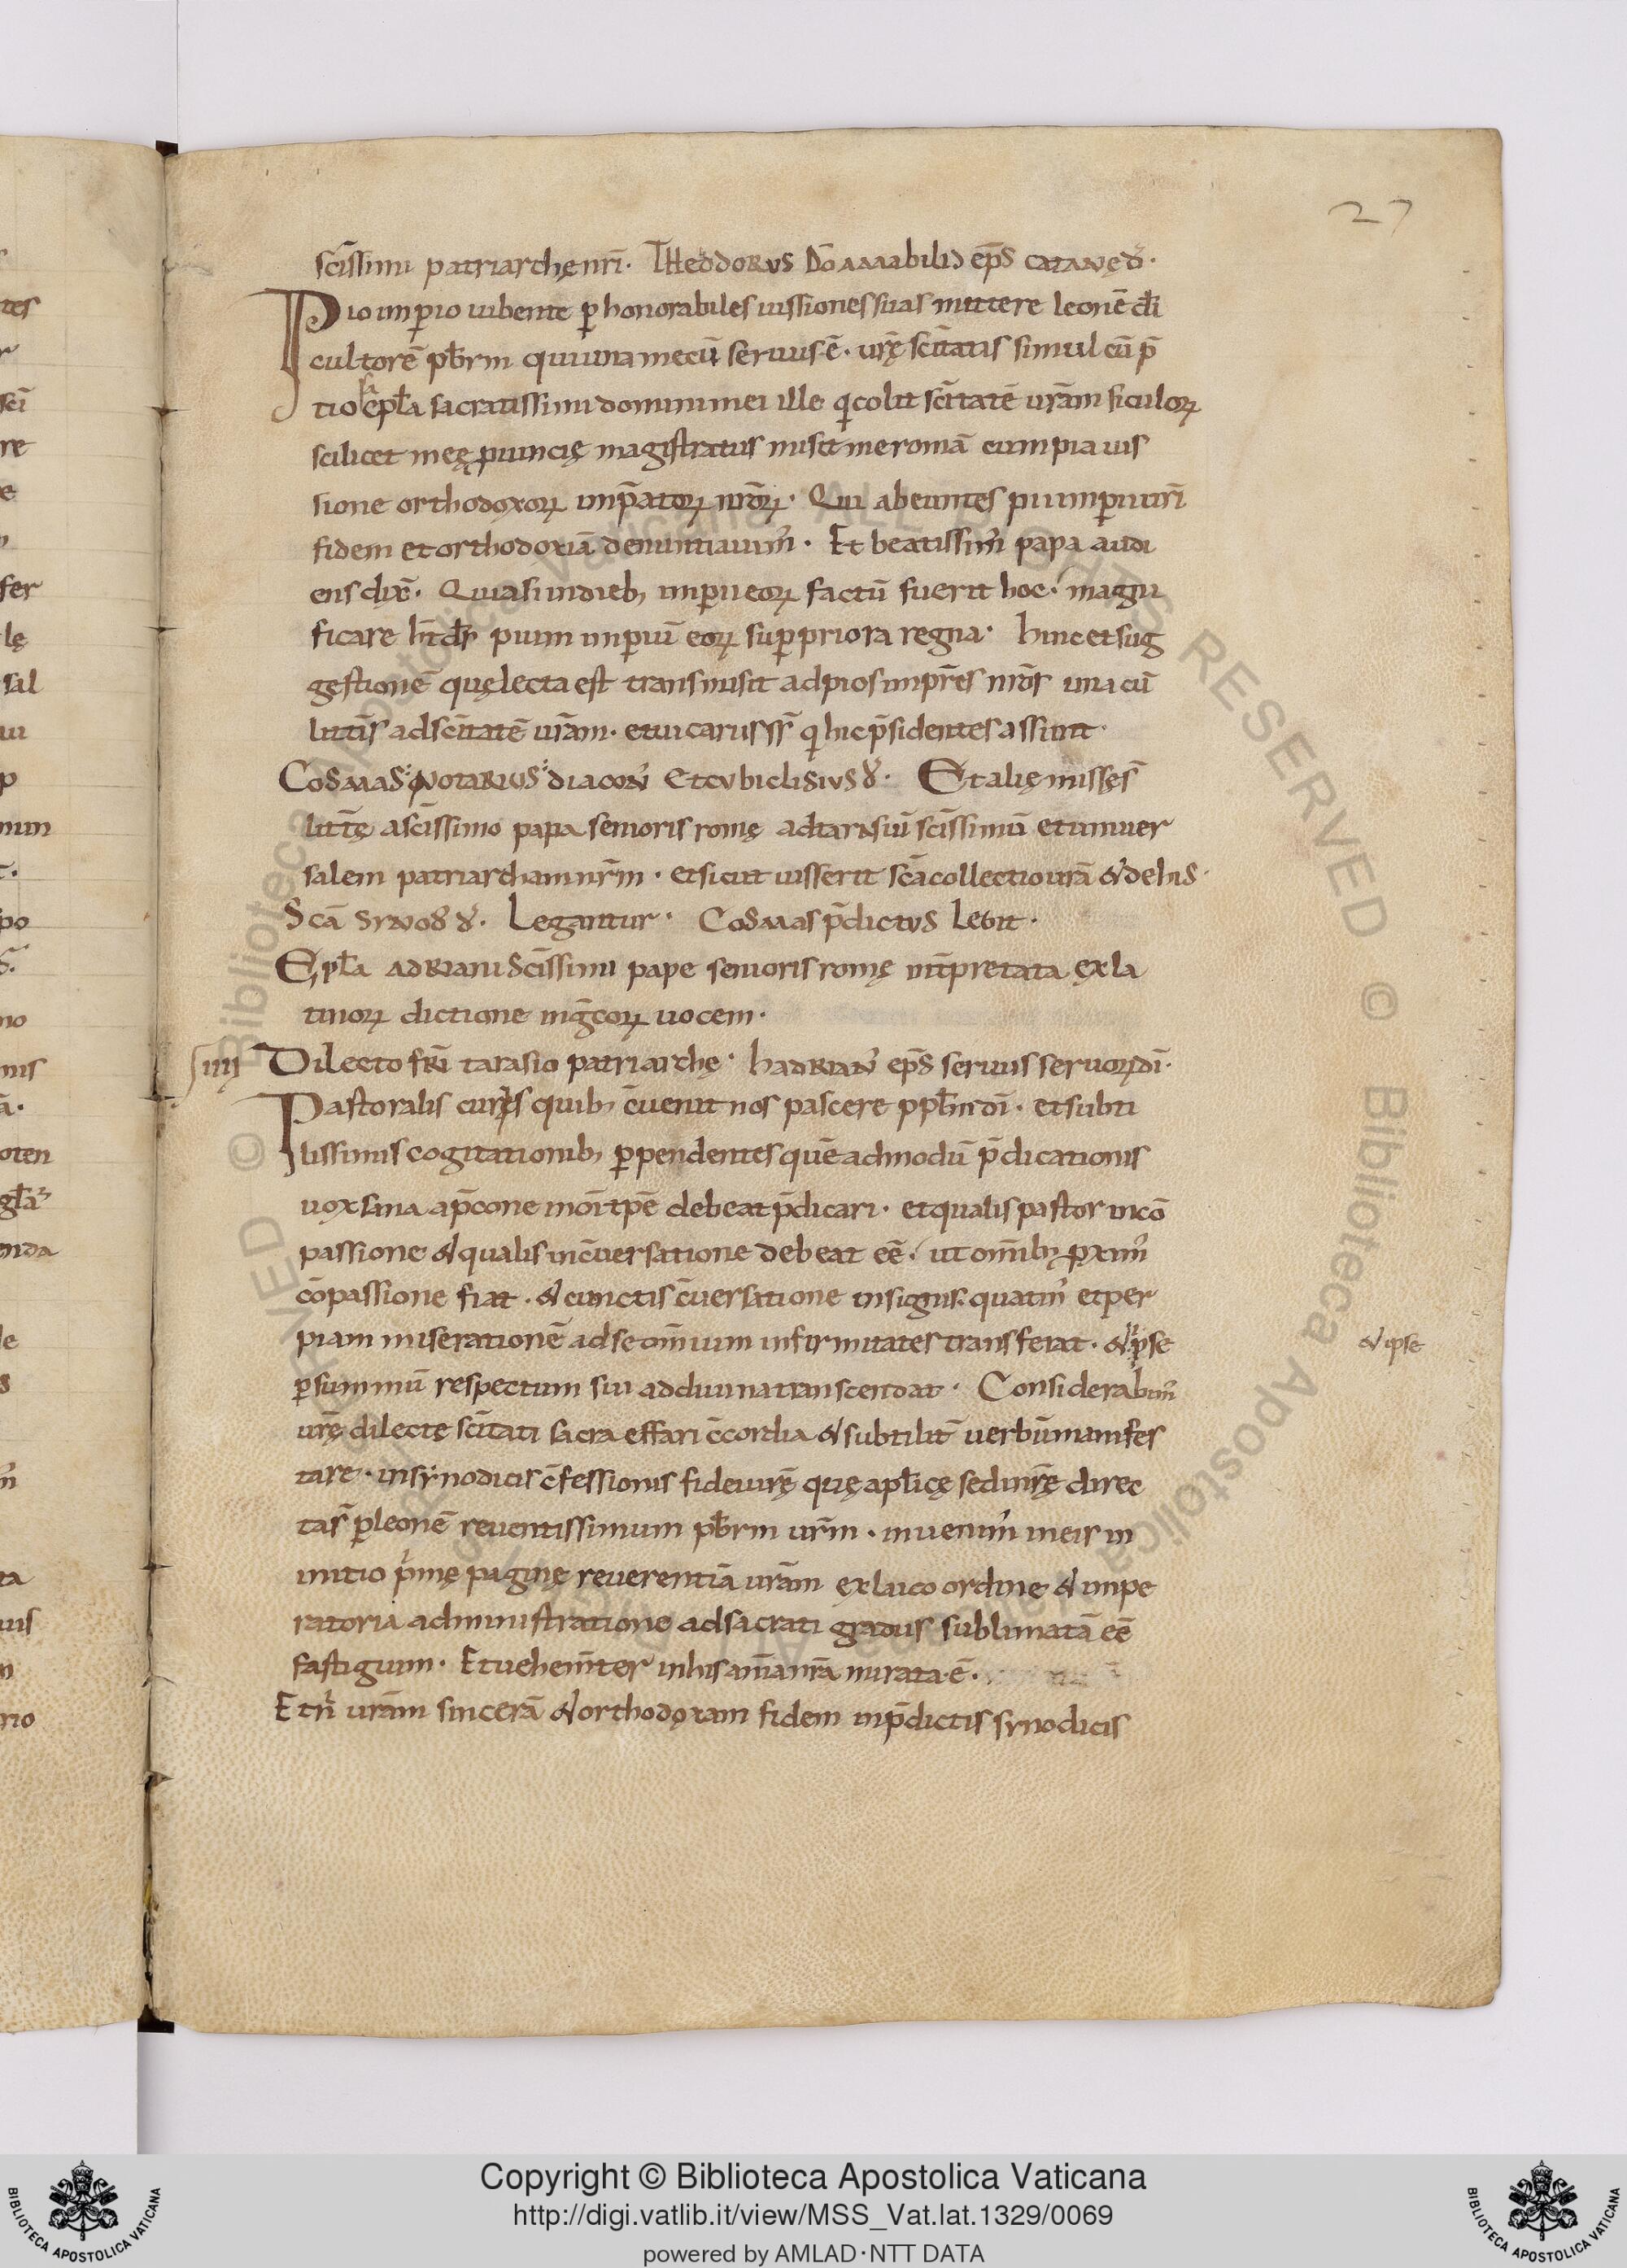 27
sc̄issimi patriarchę nr̄i. THEODORVS Dō amabilis ep̄s catanę d̄.
Pio imꝑio iubente ꝑ honorabiles iussiones suas mittere leonē dī
cultorē pb̄rm qui una mecū seruus ē. ur̄ę sc̄itatis simul cū p̄
tiosa epl̄a sacratissimi domini mei ille qi colit sc̄itatē ur̄am siculoꝝ
scilicet meę ꝓuincię magistratus misit me romā cum pia iuis
sione orthodoxoꝝ imp̄atoꝝ nr̄oꝝ. Qui abeuntes pii imꝑii ur̄i
fidem et orthodoxiā denuntiauim᾽. Et beatissim᾽ papa audi
ens dix̄. Quia si in dieb; imꝑii eoꝝ factū fuerit hoc. magni
ficare ht̄ dr̄ pium imꝑiū eoꝝ suꝑ priora regna. hinc et sug
gestionē quę lecta est transmisit ad pios imp̄res nr̄os una cū
litt̄is ad sc̄itatē ur̄am. et uicarus sr̄ qi hic p̄sidentes assunt.
Cosmas notarius diacon᾽ et cubiclisius d̄. Et alię missę s̄
litt̄ę a sc̄issimo papa senioris romę ad tarasiū sc̄issimū et uniuer
salem patriarcham nr̄m. et sicut iusserit sc̄a collectio ur̄a & de his.
Scā synod᾽ d̄. Legantur. Cosmas p̄dictus legit.
Epl̄a adriani sc̄issimi pape senioris romę int̄pretata ex la
tinoꝝ dictione in gc̄oꝝ uocem.
IIII Dilecto fr̄i tarasio patriarchę. hadrian᾽ ep̄s seruus seruoꝝ dī.
Pastoralis curis quib; c̄uenit nos pascere ppl̄m dī. et subti
lissimis cogitationib; ꝑpendentes quē admodū p̄dicationis
uox sana a p̄cone mōi tp̄e debeat p̄dicari. et qualis pastor in cō
passione & qualis in c̄uersatione debeat eē. ut omīb; ꝓxim᾽
cōpassione fiat. & cunctis c̄uersatione insignis. quatin᾽ et per
piam miserationē ad se om̄ium infirmitates transferat. & ipse
& ipse
ꝑ summū respectum sui ad diuina transcendat. Considerabim᾽
ur̄ę dilectę sc̄itati sacra effari c̄cordia & subtilit̄ uerbū manifes
tare. in synodicis c̄fessionis fidei ur̄ę quę apl̄icę sedi nr̄ę direc
ta sr̄ ꝑ leonē reuentissimum pb̄rm ur̄m. inuenim᾽ in eis in
initio p̄mę paginę reuerentiā ur̄am ex laico ordine & impe
ratoria administratione ad sacrati gradus sublimatā eē
fastigium. Et uehem̄ter in his anīa nr̄a mirata ē.
Et nī ur̄am sincerā & orthodoxam fidem in p̄dictis synodicis
Copyright © Biblioteca Apostolica Vaticana
http://digi.vatlib.it/view/MSS_Vat.lat.1329/0069
powered by AMLAD·NTT DATA